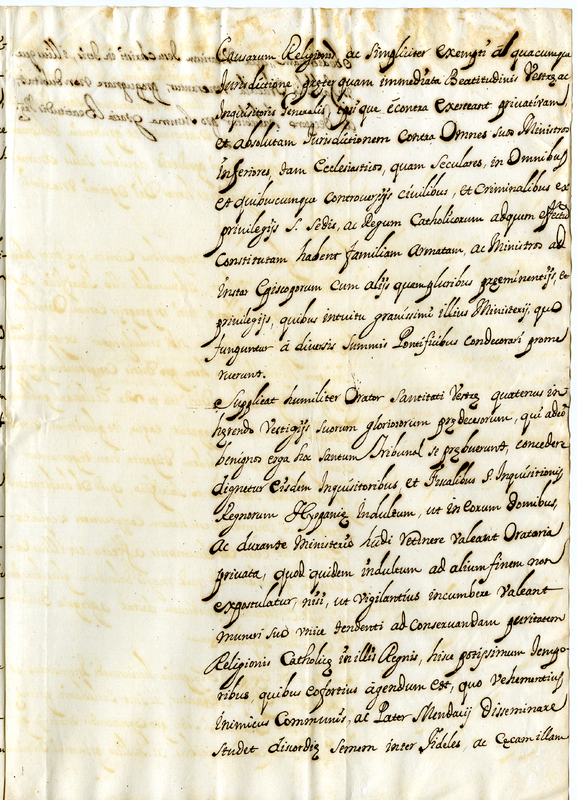 Causarum Religionis ac simpliciter exempti á quacumque
Jurisdictione, preterquam immediata Beatitudinis Vestrę ac
Inquisitoris Generalis, ipsique é contra exerceant privativam
et absolutam Jurisdictionem contra Omnes suos Ministros
inferiores, tam Ecclesiasticos, quam Seculares, in Omnibus
et quibuscumque controversijs civilibus, et Criminalibus ex
privilegijs S. Sedis, ac Regum Catholicorum adquem effectum
Constitutam habent familiam Armatam, ac Ministros ad
instar Episcoporum cum alijs quampluribus preeminentijs, et
privilegijs, quibus intuitu gravissimi illius Ministerij, quo
funguntur á diversis Summis Pontificibus condecorari prome
ruerunt.
Supplicat humiliter Orator Sanctitati Vestrę quatenus in
hęrendo Vestigijs suorum gloriosorum prędecessorum, qui adeo
benignos erga hoc Sanctum Tribunal se prębuerunt, concedere
dignetur Eisdem Inquisitoribus, et Fiscalibus S. Inquisitionis
Regnorum Hyspanię Indultum, ut in eorum domibus,
ac durante Ministerio retinere valeant Oratoria
privata, quod quidem indultum ad alium finem non
expostulatur, nisi, ut vigilantius incumbere valeant
muneri suo unice tendenti ad conservandam puritatem
Religionis Catholicę in illis Regnis, hisce potissimum tempo-
ribus, quibus eo fortius agendum est, quo vehementius
inimicus Communis, ac Pater Mendacij disseminare
studet discordię semen inter fideles, ac Cęcam illam